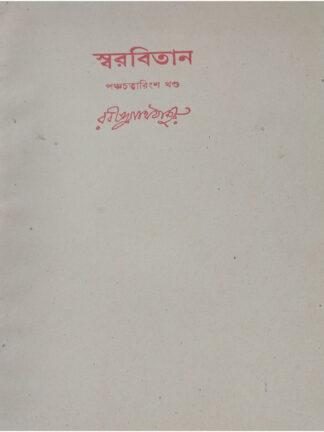 স্বরবিতান
পঞ্চচত্বারিংশ খণ্ড
রবীন্দ্রনাথ ঠাকুর